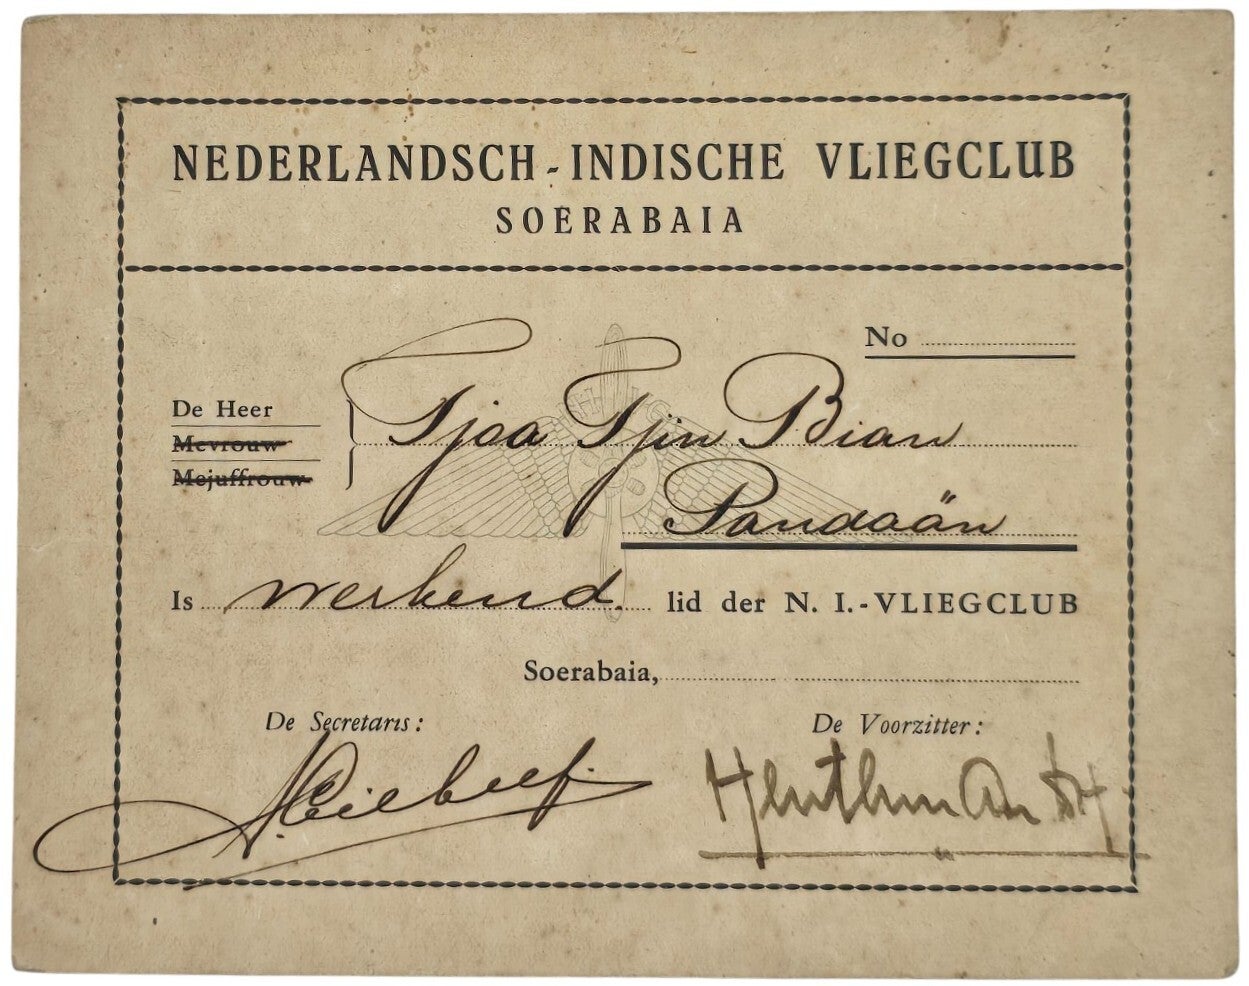 NEDERLANDSCH-INDISCHE VLIEGCLUB
SOERABAIA
No
De Heer
Mevrouw
Mejuffrouw
Tjoa Tjin Bian
Pandaän
Is werkend. lid der N. I.-VLIEGCLUB
Soerabaia,
De Secretaris: De Voorzitter: